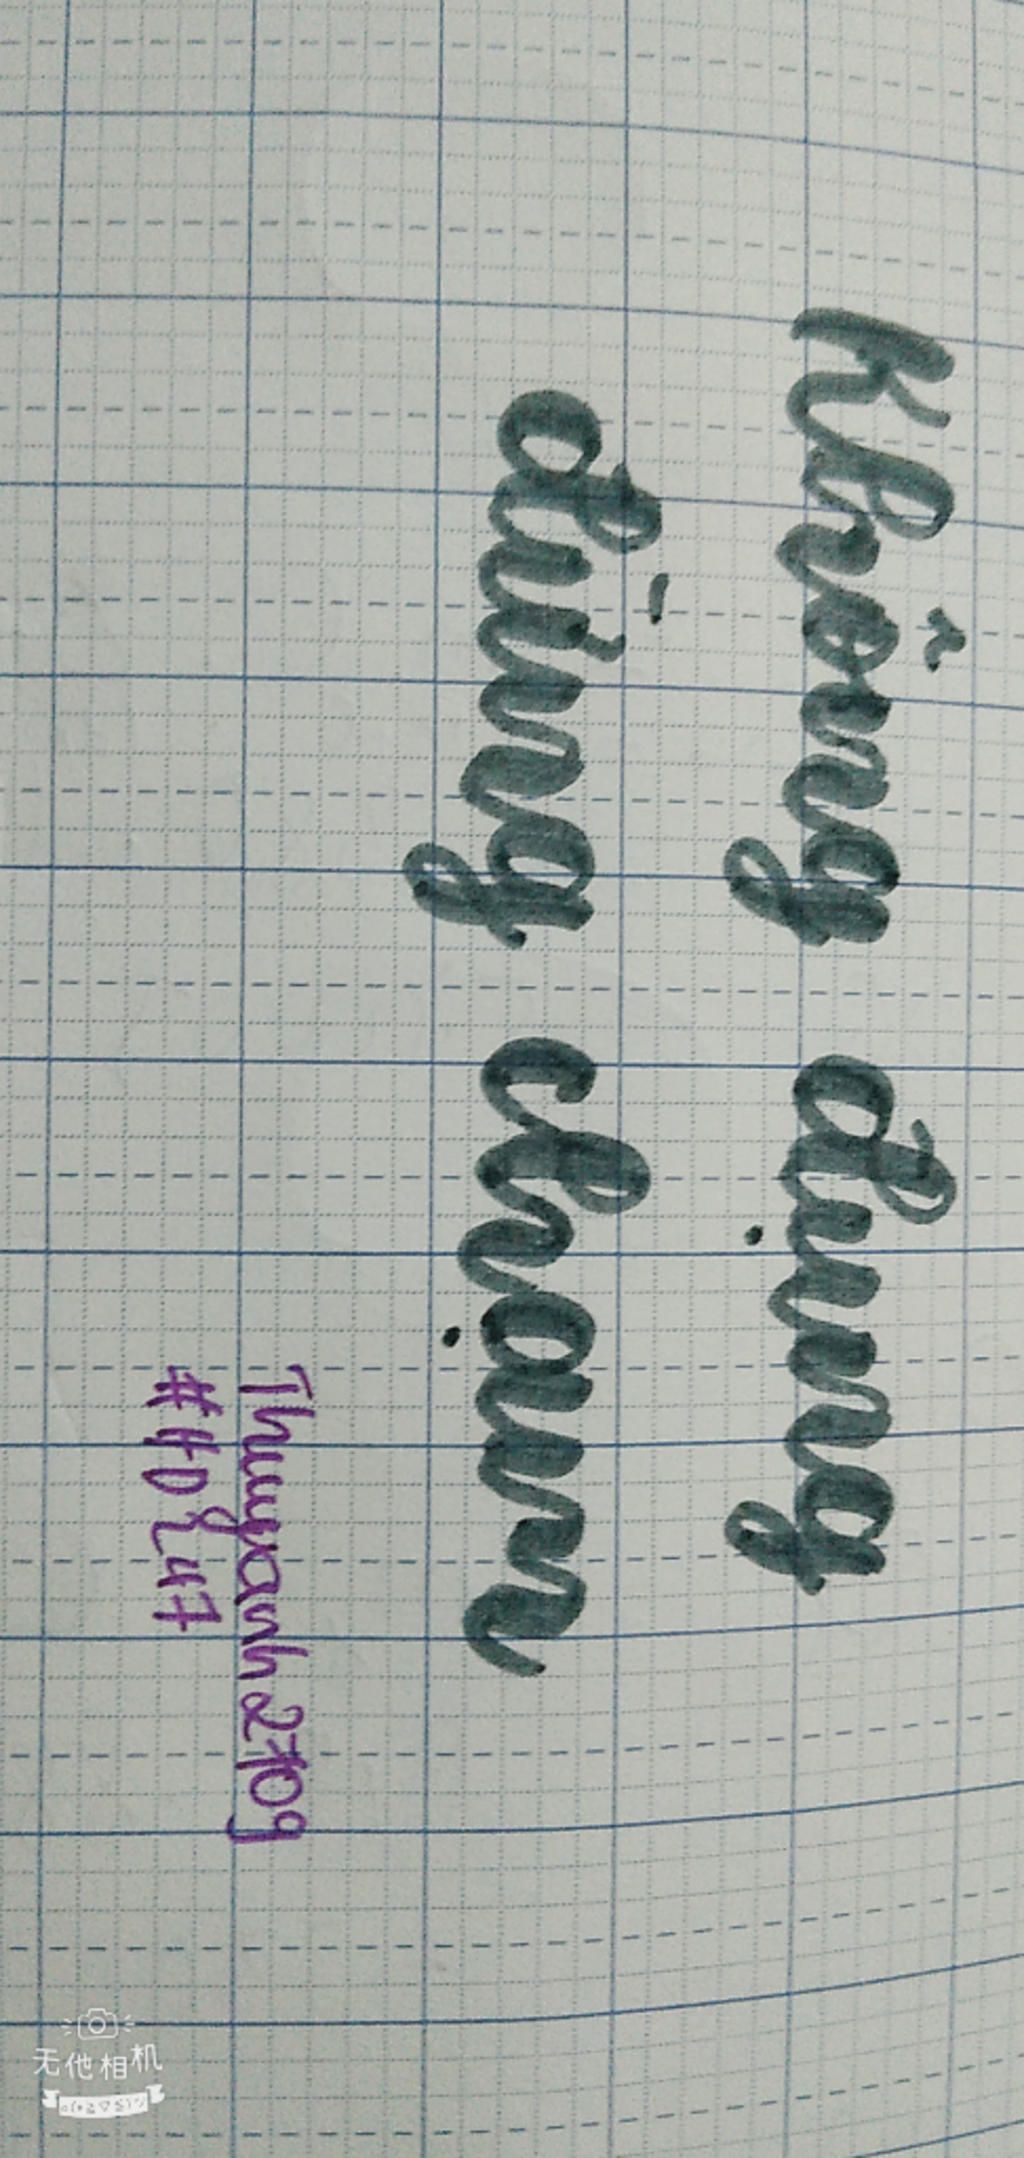 Không đụng
đừng chạm
Thuyanh2709
#HD247
无他相机